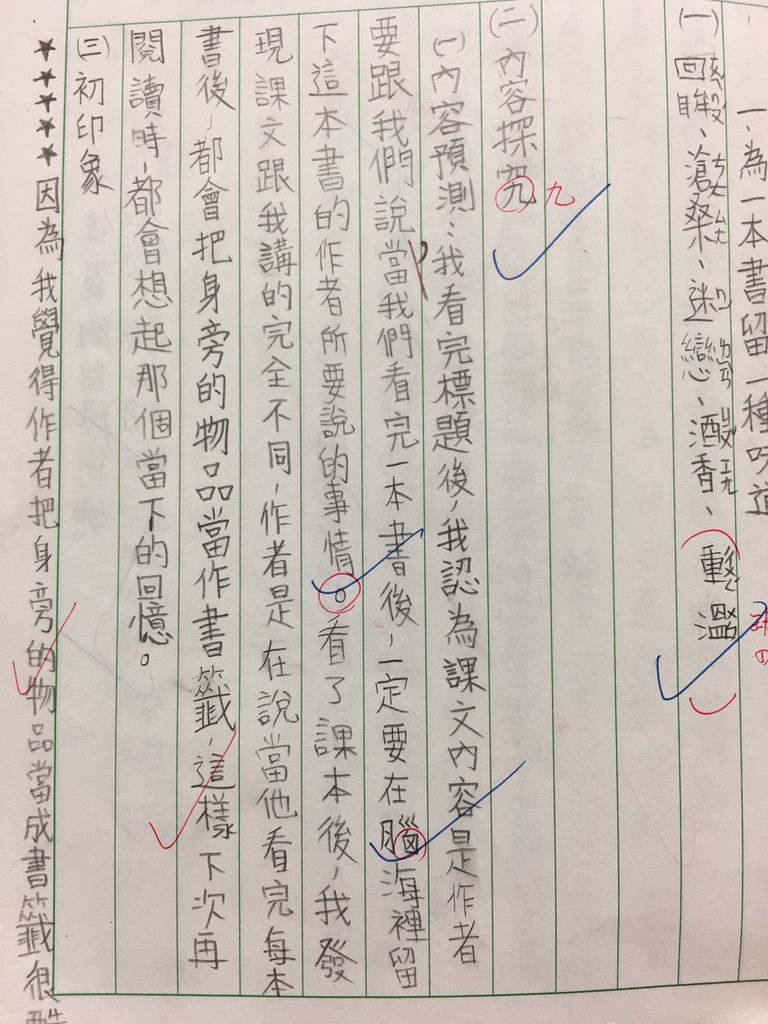 一、為一本書留一種味道
(一)回眸、滄桑、迷戀、酒香、
(二)內容探究 九
(一)內容預測：我看完標題後，我認為課文內容是作者
要跟我們說當我們看完一本書後，一定要在腦海裡留
下這本書的作者所要說的事情。看了課本後，我發
現課文跟我講的完全不同，作者是在說當他看完每本
書後，都會把身旁的物品當作書籤，這樣下次再
閱讀時，都會想起那個當下的回憶。
(三)初印象
★★★★★因為我覺得作者把身旁的物品當成書籤很酷